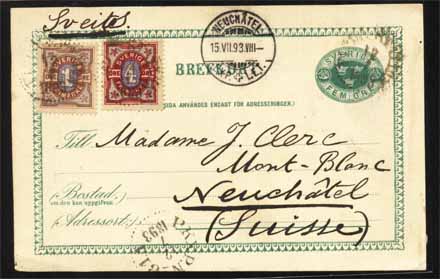 Sveits.
NEUCHÂTEL
15.VII.93.VIII-
SVERIGE
1
SVERIGE
4
BREFKORT
SVERIGE
FEM ÖRE
(DENNA SIDA ANVÄNDES ENDAST FÖR ADRESSERINGEN.)
Till Madame J. Clerc
Mont-Blanc
Bostad:
om den kan uppgifvas.
Neuchâtel
Adressort:
(Suisse)
1893